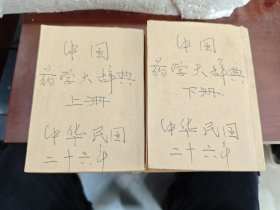 中国
药学大辞典
上册
中华民国
二十六年
中国
药学大辞典
下册.
中华民国
二十六年